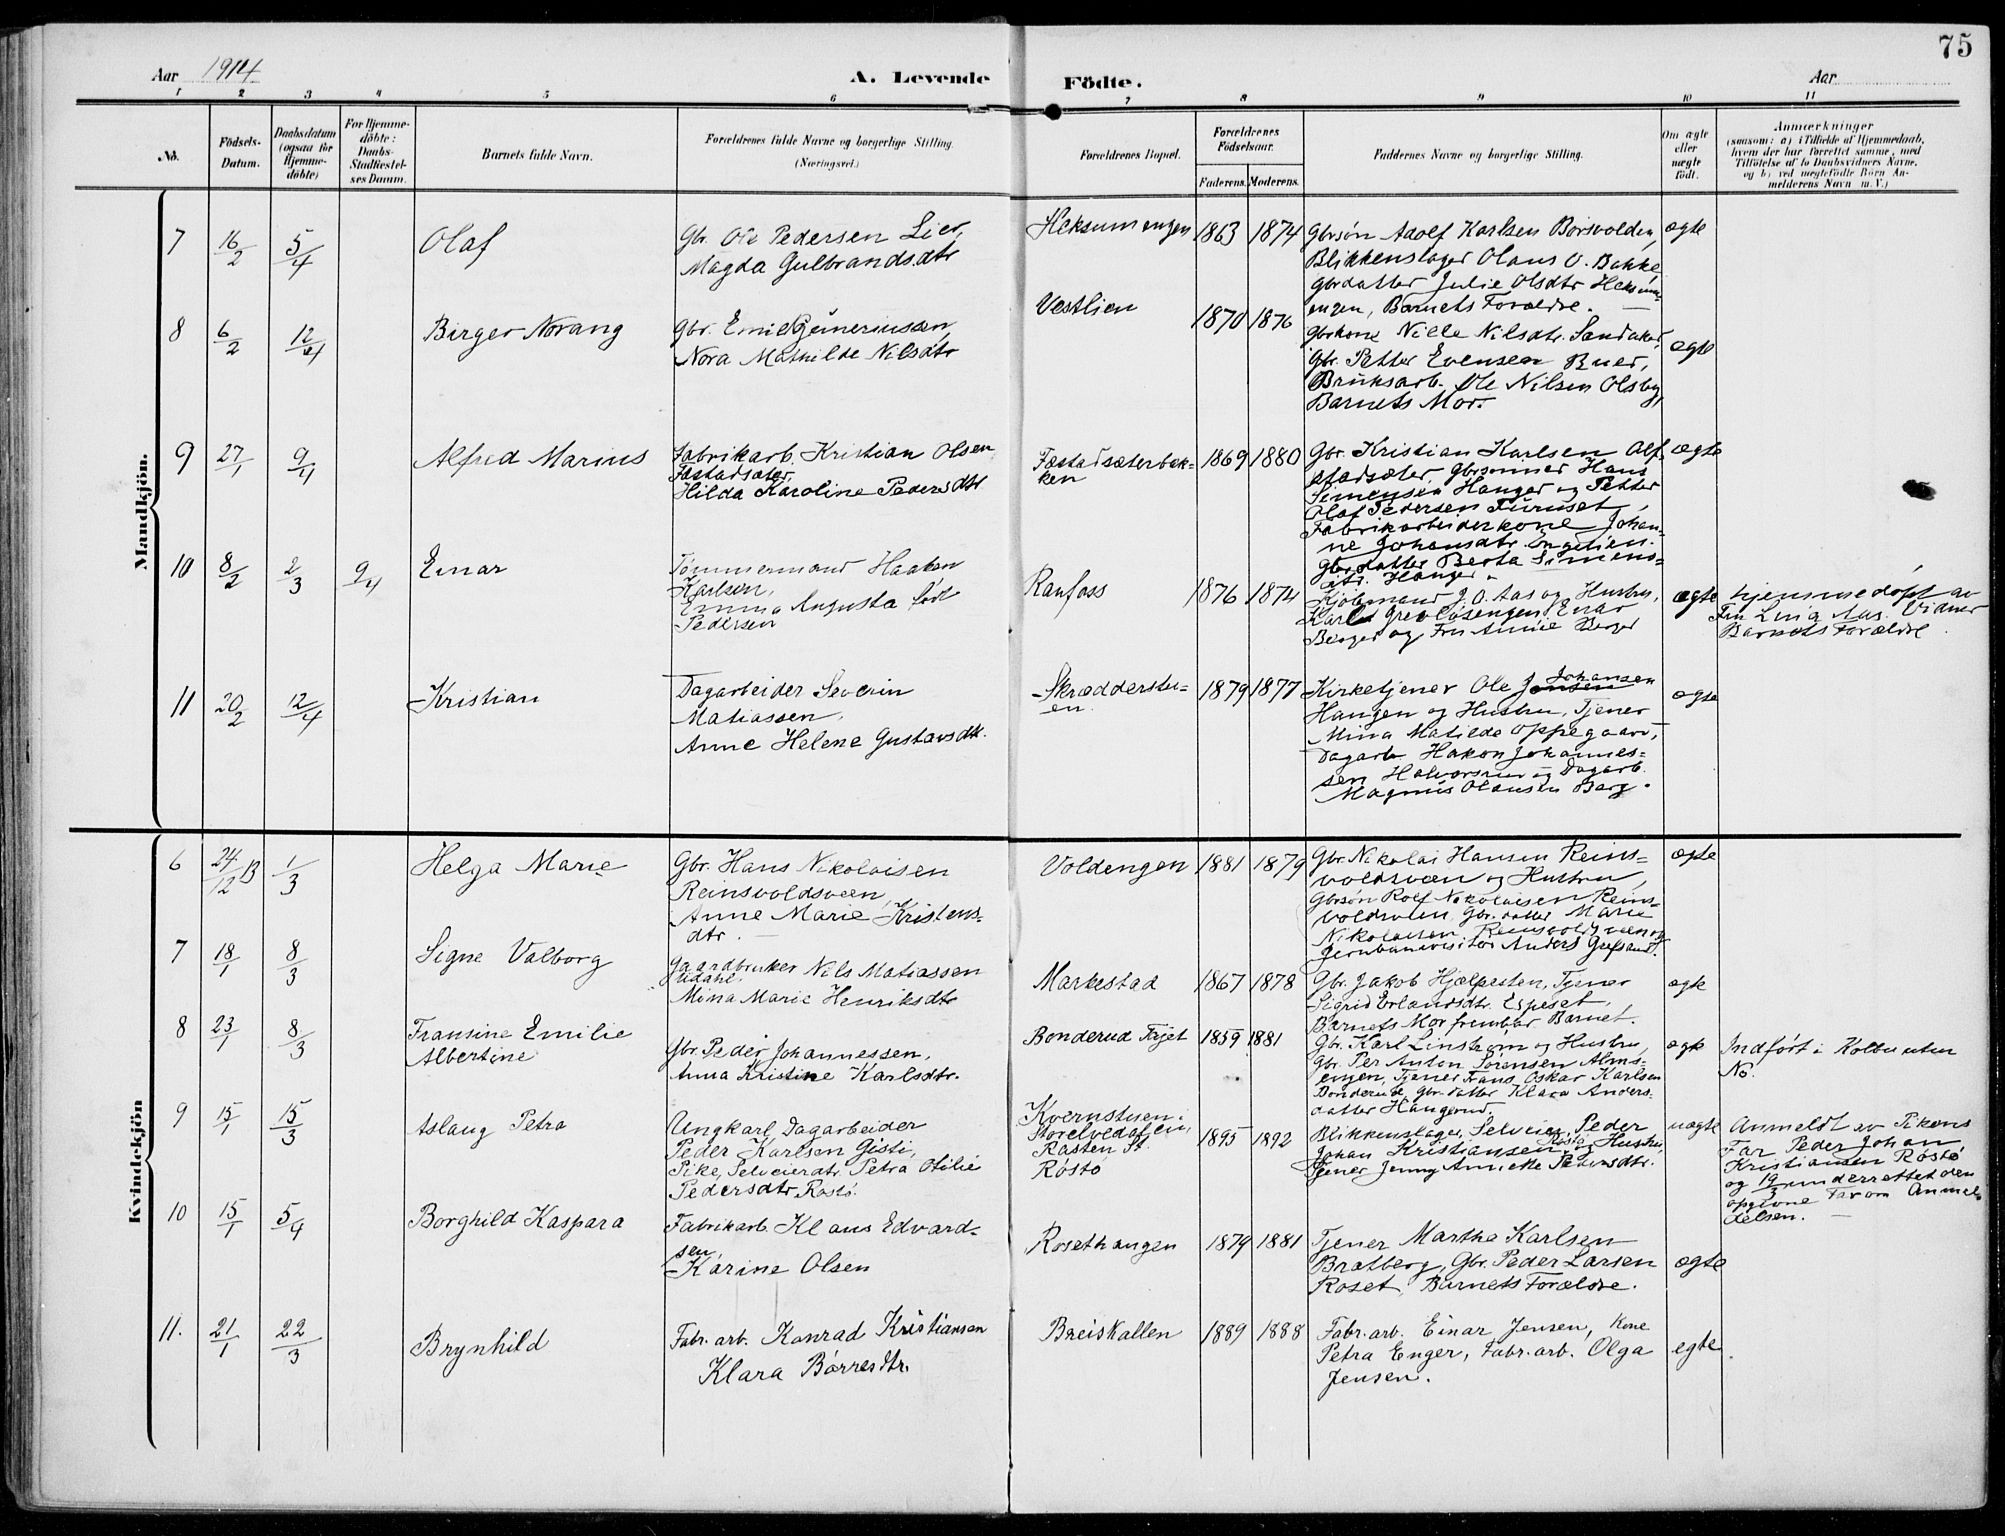 75
Aar 1914
A. Levende Födte.
Aar
1 2 3 4 5 6 7 8 9 10 11
No.
Födsels-Datum.
Daabsdatum (ogsaa for Hjemme-döbte)
For Hjemme-döbte: Daabs-Stadfæstel-ses Datum.
Barnets fulde Navn.
Forældrenes fulde Navne og borgerlige Stilling. (Næringsvei.)
Forældrenes Bopæl.
Forældrenes Födselsaar.
Faderens. Moderens.
Faddernes Navne og borgerlige Stilling.
Om ægte eller uægte födt.
Anmærkninger
(saasom: a) i Tilfælde af Hjemmedaab,
hvem der har forrettet samme, med
Tilföielse af to Daabsvidners Navne.
og b) ved uægtefödte Börn An-
melderens Navn m. V.)
Mandkjön.
7 16/2 5/4 Olaf
Gbr. Ole Pedersen Lier,
Magda Gulbrandsdtr
Heksumengen 1863 1874
Gbrsøn Adolf Karlsen Børsvolden,
Blikkenslager Olaus O. Bakke
gbrdatter Julie Olsdtr Heksum-
engen, Barnets Forældre.
ægte
8 6/2 12/4 Birger Norang
Gbr. Emil
Nora Mathilde Nilsdtr
Vestlien 1870 1876
Gbrkone Nille Nilsdtr. Sandaker,
Gbr. Petter Evensen Buer,
Bruksarb. Ole Nilsen Olsby,
Barnets Mor.
ægte
9 27/1 9/4 Alfred Marius
Fabrikarb. Kristian Olsen
Fæstadsæter,
Hilda Karoline Pedersdtr
Fæstadsæterbak-
ken 1869 1880
Gbr. Kristian Karlsen Alf-
stadsæter, gbrsønner Hans
Simensen Hanger og Petter
Olaf Pedersen Furuset,
Fabrikarbeiderkone Johan-
ne Johansdtr. Engelien.
Gbrdatter Berta Simens-
dtr. Hanger.
ægte
10 8/2 2/3 9/4 Einar
Tømmermand Haaken
Karlsen,
Emma Augusta født
Pedersen
Raufoss 1876 1874
Kjøbmand J. O. Aas og Hustru,
Karl Grevløsengen, Einar
Berger og Fru Annie Berger
ægte
hjemmedøpt av
Fru Lina Aas. Vidner
Barnets Forældre
11 20/2 12/4 Kristian
Dagarbeider Severin
Matiassen,
Anne Helene Gustavsdtr.
Skrædderstu-
en. 1879 1877
Kirketjener Ole Jonsen Johansen
Haugen og Hustru, Tjener
Mina Matilde Oppegaard,
Dagarb. Hakon Johannes-
sen Halvorsrud og Dagarb.
Magnus Olausen Berg.
ægte
Kvindekjön
6 24/12 13 1/3 Helga Marie
Gbr. Hans Nikolaisen
Reinsvoldsveen,
Anne Marie Kristens-
dtr.
Voldengen 1881 1879
Gbr. Nikolai Hansen Reins-
voldsveen og Hustru,
Gbrsøn Rolf Nikolaisen Reins-
voldsveen, Gbr. datter Marie
Nikolaisen Reinsvoldsveen og
Jernbanevisitør Anders
ægte
7 18/1 8/3 Signe Valborg
Gaardbruker Nils Matiassen
Mina Marie Henriksdtr
Markestad 1867 1878
Gbr. Jakob Hjelpesten, Tjener
Sigrid Erlandsdtr. Espeset,
Barnets Mor frembar Barnet.
ægte
8 23/1 8/3 Fransine Emilie
Albertine
Gbr. Peder Johannessen,
Anna Kristine Karlsdtr.
Bonderud Eiet 1859 1881
Gbr. Karl Linstrøm og Hustru,
Gbr. Per Anton Sørensen Alms-
engen, Tjener Frans Oskar Karlsen
Bonderud, Gbr. datter Klara Anders-
datter Haugerud.
ægte
Indført i Kolbu uten
No.
9 15/1 15/3 Aslaug Petra
Ungkarl Dagarbeider
Peder Karlsen Gisti,
Pike, Selveierdtr. Petra Otilie
Pedersdtr. Røstø.
Kvernstuen:
Storelvedalen,
Rasten St.
Røstø
1895 1892
Blikkenslager, Selveier, Peder
Johan Kristiansen Røstø og Hustru,
Tjener Jenny Annette Pedersdtr.
uægte
Anmeldt av Pikens
Far Peder Johan
Kristiansen Røstø
og 19/3 underrettet den
opgivne Far om Anmel-
delsen.
10 15/1 5/4 Borghild Kaspara
Fabrikarb. Klaus Edvard-
sen,
Karine Olsen
Rosethaugen 1879 1881
Tjener Martha Karlsen
Bratberg, Gbr. Peder Larsen
Roset, Barnets Forældre.
ægte
11. 21/1 22/3 Brynhild
Fabr. arb. Konrad Kristiansen
Klara Børresdtr.
Breiskallen 1889 1888
Fabr. arb. Einar Jensen, Kone
Petra Enger, Fabr. arb. Olga
Jensen.
egte